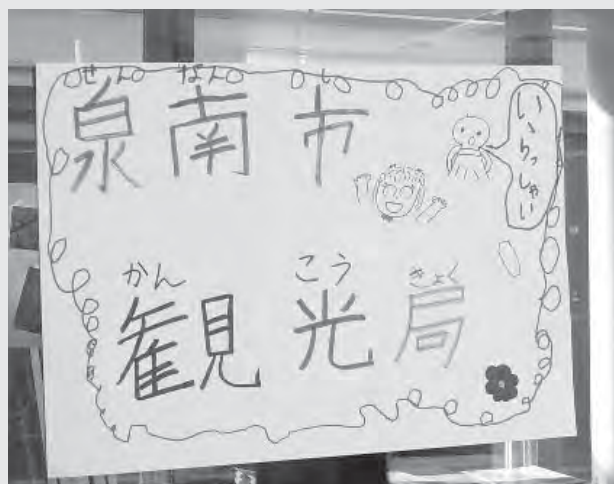 せん なん し
泉南市
いらっしゃい
かん こう きょく
観光局